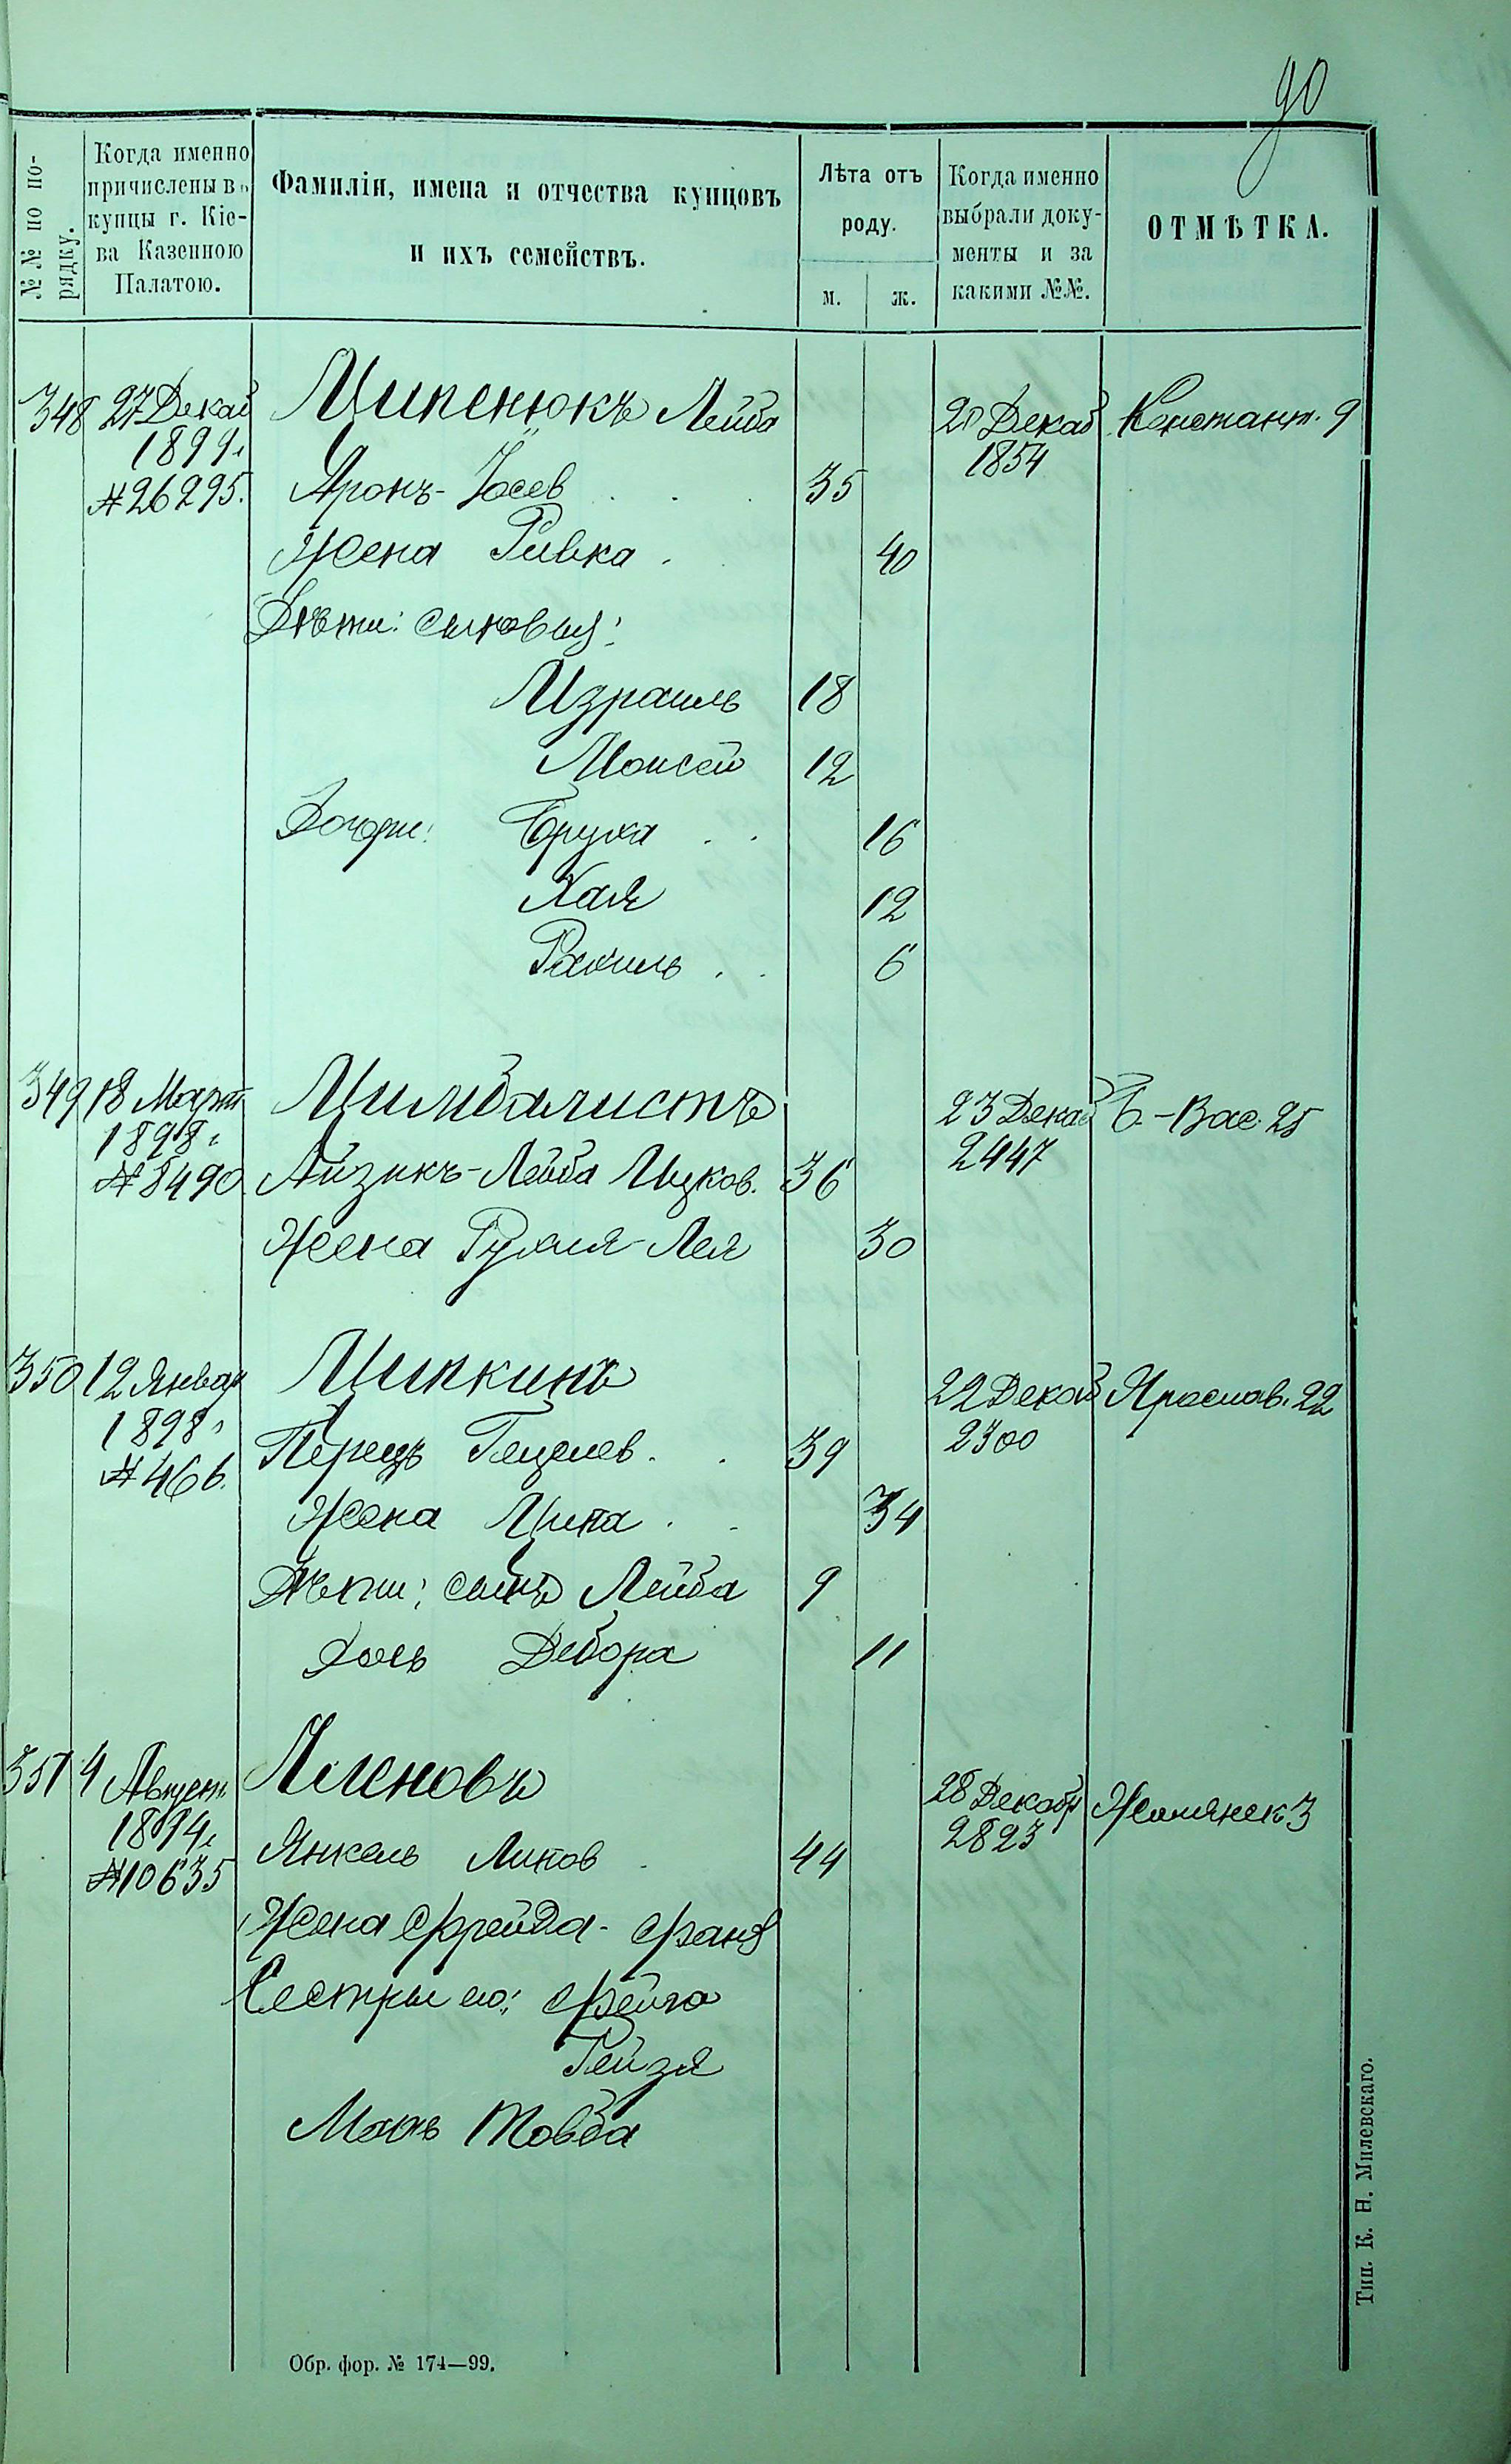 90
№№ по по-
рядку.
Когда именно
причислены въ
купцы г. Кіе-
ва Казенною
Палатою.
Фамиліи, имена и отчества купцовъ
и ихъ семействъ.
Лѣта отъ
роду.
м.
ж.
Когда именно
выбрали доку-
менты и за
какими №№.
ОТМѢТКА.
348 27 Декаб Ципенюкъ Лейба 20 Декаб Константин. 9
1899 г. 1854
№ 26295. Аронъ-Іосев 35
Жена Ривка 40
Дѣти: сыновья:
Израиль 18
Моисей 12
Дочери: Бруха 16
Хая 12
Рахиль 6
349 18 Март Цимбалистъ 23 Декаб Б.-Вас. 25
1898 г. 2447
№ 8490 Айзикъ-Лейба Ицков. 36
Жена Рухля-Лея 30
350 12 Январ Ципкинъ 22 Декаб Яросл. 22
1898 г. 2300
№ 466. Перецъ Гецелев. 39
Жена Ципа 34
Дѣти: сынъ Лейба 9
Дочь Дебора 11
351 4 Август. 28 Декабр Жилянск 3
1894 г. 2823
№ 10635 Янкель Липов 44
Жена Фрейда-Фаня
Сестры его: Фейга
Рейзя
Мать Товба
Обр. фор. № 174—99.
Тип. К. Н. Милевскаго.